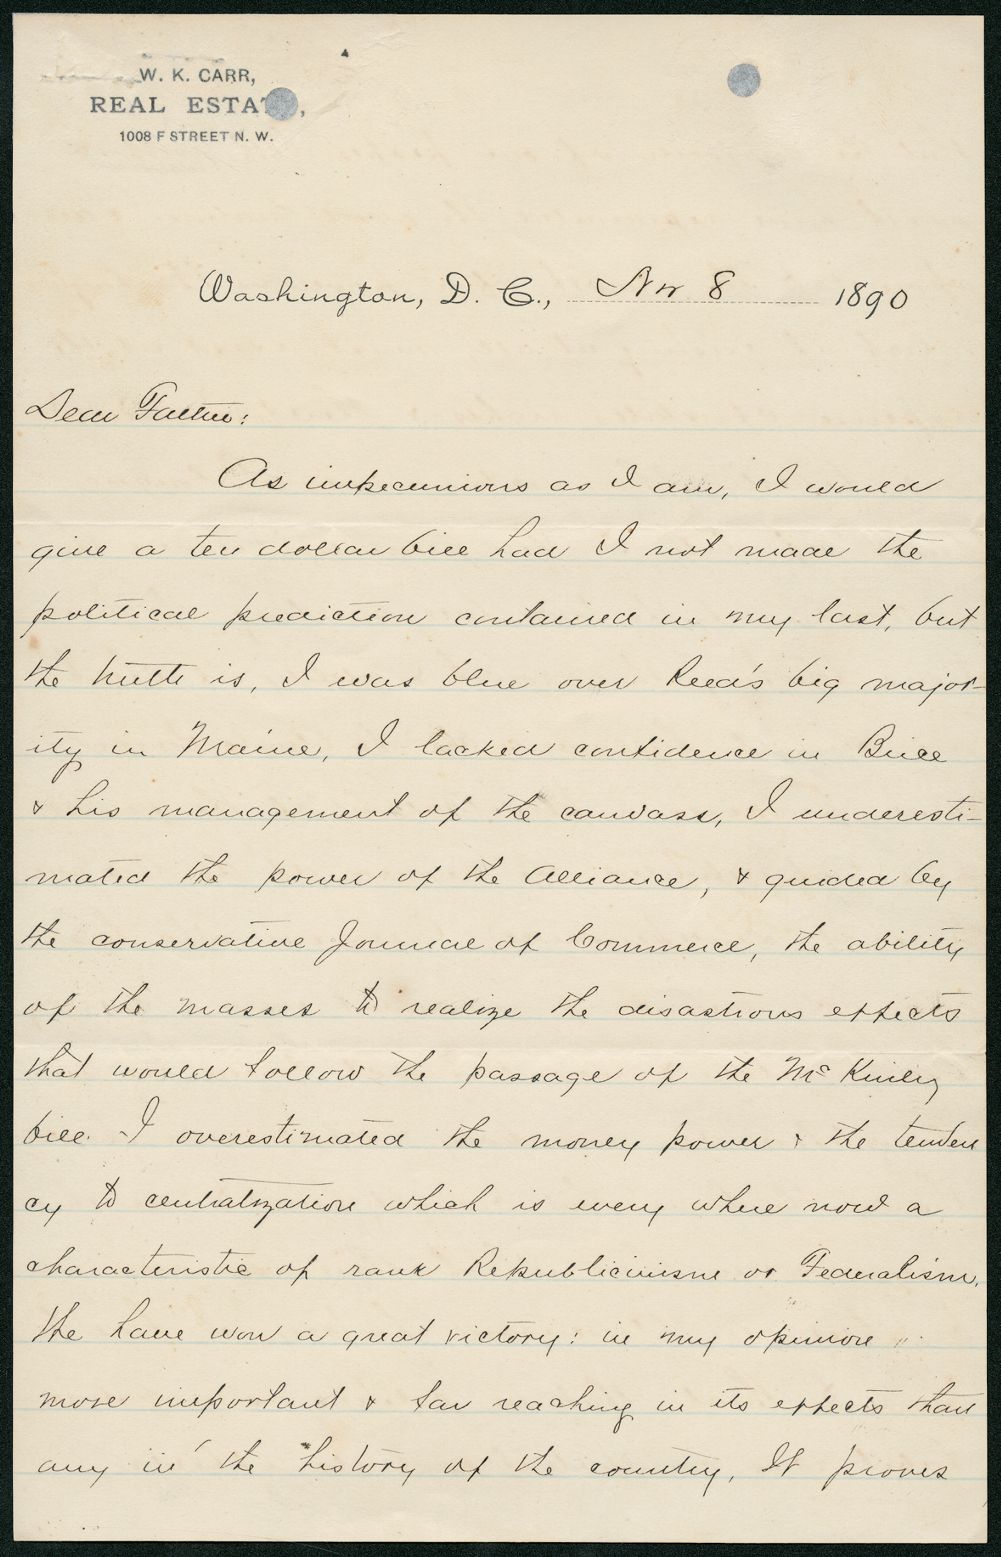 W. K. CARR,
REAL ESTATE,
1008 F STREET N. W.
Washington, D. C., Nov 8 1890
Dear Father:
As impecunious as I am, I would
give a ten dollar bill had I not made the
political prediction contained in my last, but
the truth is, I was blue over Reed's big major-
ity in Maine, I lacked confidence in Brice
& his management of the canvass, I underesti-
mated the power of the Alliance, & guided by
the conservative Journal of Commerce, the ability
of the masses to realize the disastrous effects
that would follow the passage of the McKinley
bill. I overestimated the money power & the tenden
cy to centralization which is every where now a
characteristic of rank Republicanism or Federalism.
We have won a great victory: in my opinion
more important & far reaching in its effects than
any in the history of the country, It proves